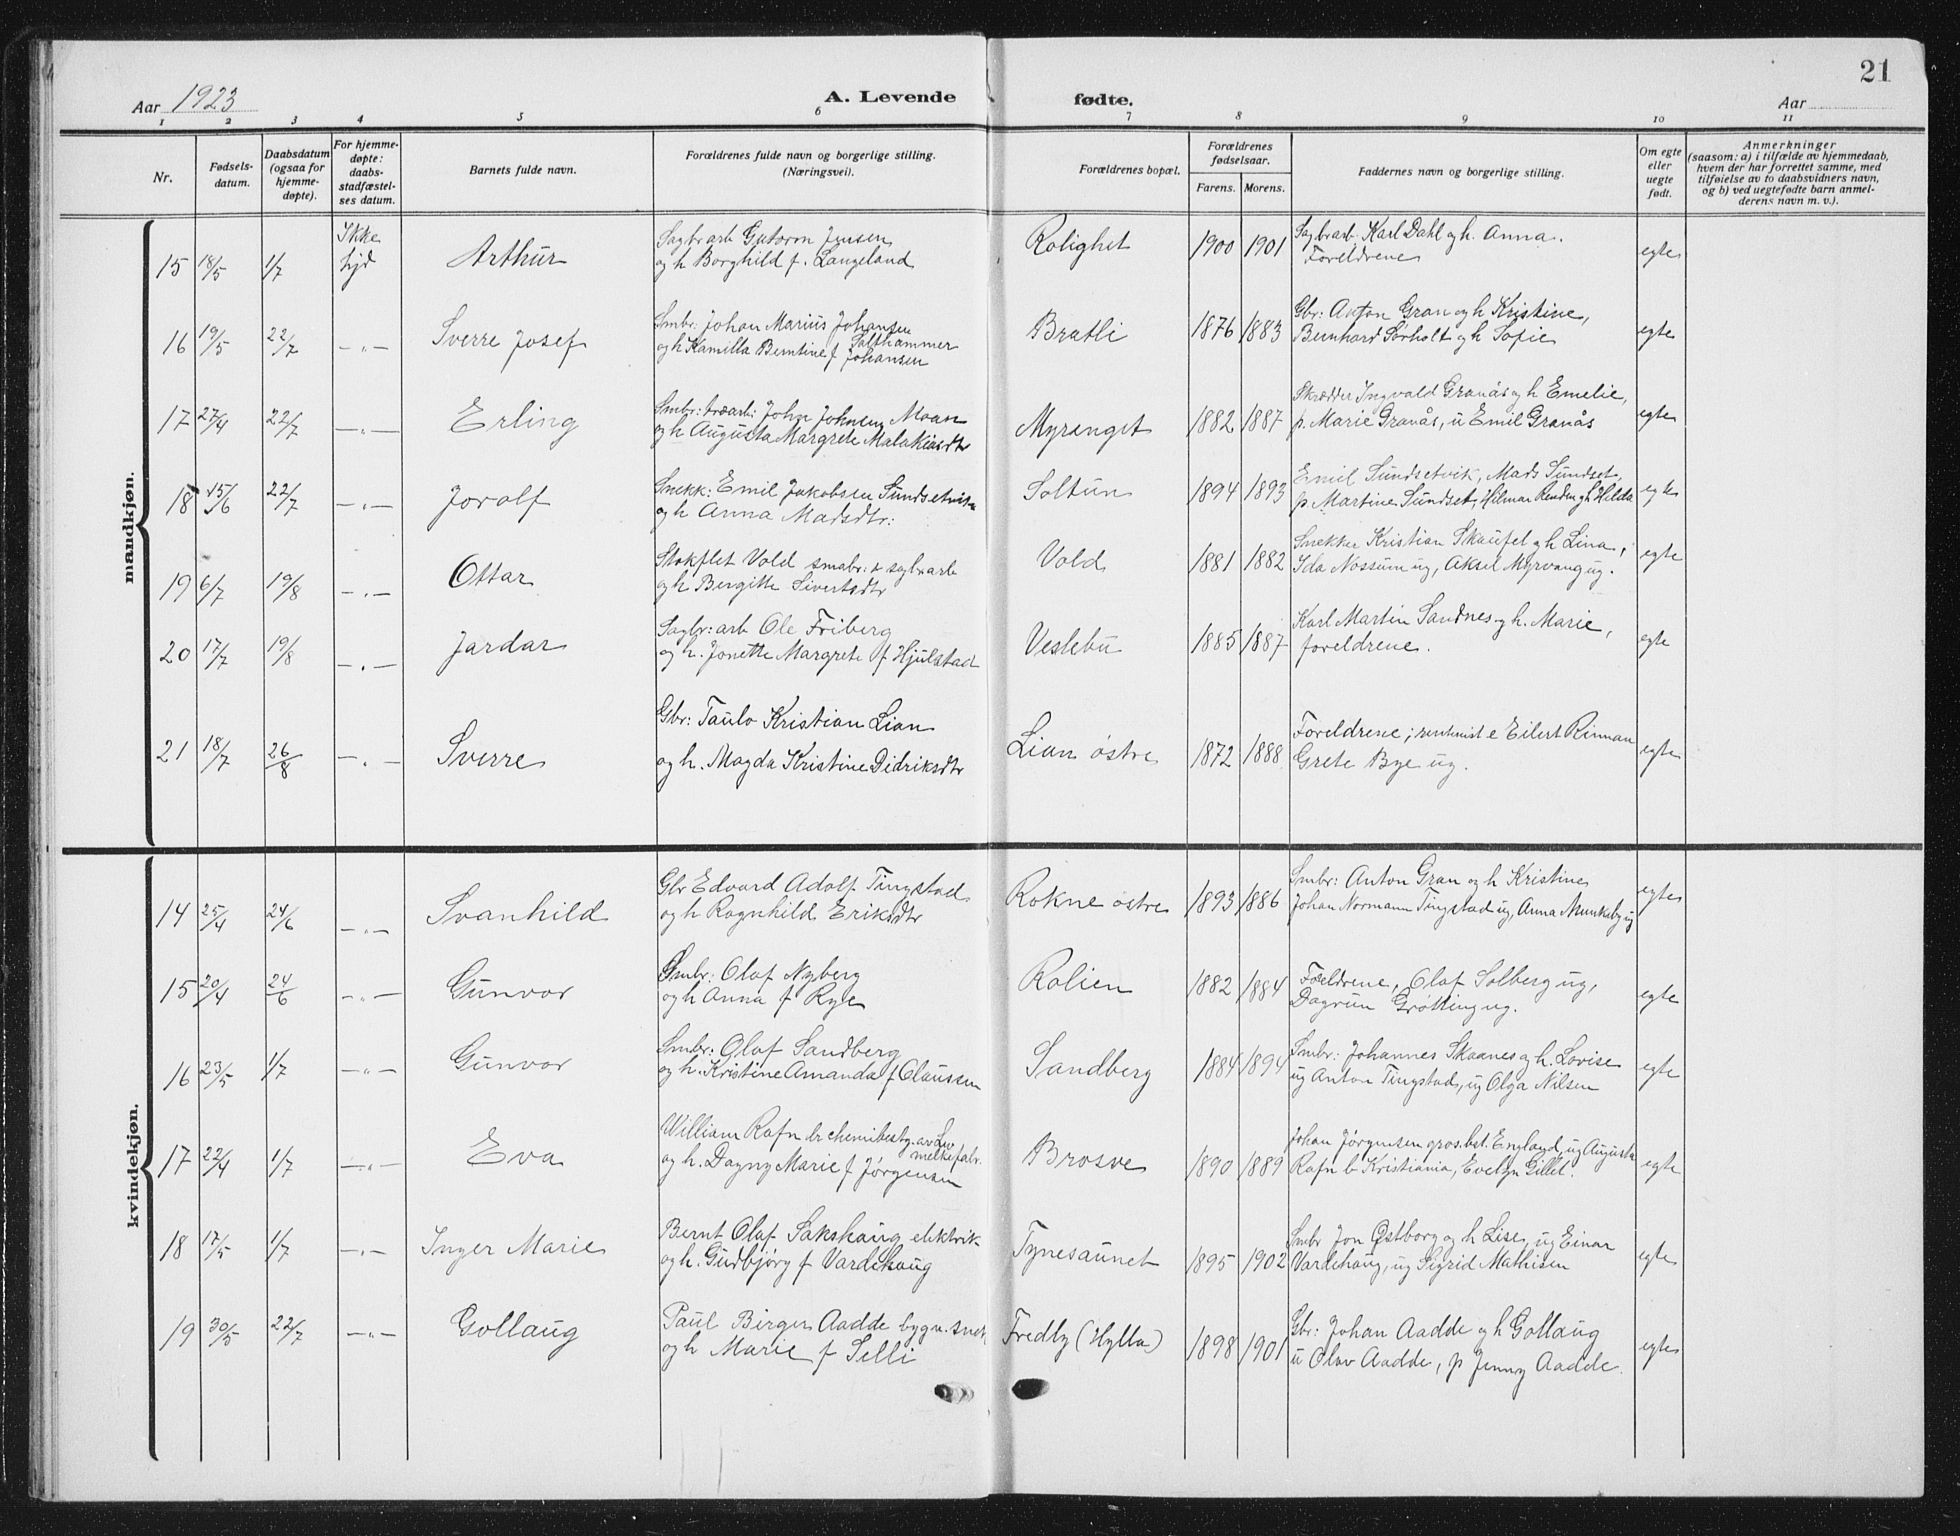 21
Aar 1923
A. Levende fødte.
Aar
1 2 3 4 5 6 7 8 9 10 11
Nr.
Fødsels-
datum.
Daabsdatum
(ogsaa for
hjemme-
døpte).
For hjemme-
døpte:
daabs-
stadfæstel-
ses datum.
Barnets fulde navn.
Forældrenes fulde navn og borgerlige stilling.
(Næringsvei).
Forældrenes bopæl.
Forældrenes
fødselsaar.
Farens. Morens.
Faddernes navn og borgerlige stilling.
Om egte
eller
uegte
født.
Anmerkninger
(saasom: a) i tilfælde av hjemmedaab,
hvem der har forrettet samme, med
tilføielse av to daabsvidners navn,
og b) ved uegtefødte barn anmel-
derens navn m. v.).
mandkjøn.
Ikke
15 18/5 1/7 Arthur
Sagbr arb Gutorm Jensen
og h Borghild f. Langeland
Rolighet 1900 1901
Sagbr arb. Karl Dahl og h. Anna.
Foreldrene
egte
16 19/5 22/7 -"- Sverre Josef
Smbr: Johan Marius Johansen
Salthammer
og h Kamilla Berntine f Johansen
Bratli 1876 1883
Gbr: Anton Gran og h Kristine,
Bernhard Sørholt og h Sofie
egte
17 27/4 22/7 -"- Erling
Smbr: træarb: John Johnsen Moan
og h Augusta Margrete Malakiasdtr
Myrenget 1882 1887
Skrædder Ingvald Granås og h Emelie,
p. Marie Granås, u Emil Granås
egte
18 15/6 22/7 -"- Jorolf
Snekk: Emil Jakobsen Sundsetvik
og h Anna Madsdtr:
Soltun 1894 1893
Emil Sundsetvik, Mads Sundset,
p. Martine Sundset, Hilmar Renden og h Hilda
egte
19 6/7 19/8 -"- Ottar
Stokflet Vold smabr: & sagbr arb
og h Bergitte Sivertsdtr
Vold 1881 1882
Snekker Kristian Skaufel og h Lina,
Ida Nossum ug, Aksel Myrvang ug.
egte
20 17/7 19/8 -"- Jardar
Sagbr: arb Ole Friberg
og h. Jonette Margrete f Hjulstad
Veslebu 1885 1887
Karl Martin Sandnes og h. Marie,
foreldrene.
egte
21 18/7 26/8 -"- Sverre
Gbr: Paulo Kristian Lian
og h. Magda Kristine Didriksdtr
Lian østre 1872 1888
Foreldrene; rentenist e Eilert Rinnan
Grete Bye ug.
egte
kvindekjøn.
14 25/4 24/6 -"- Svanhild
Gbr Edvard Adolf Tingstad
og h Ragnhild Eriksdtr
Rokne østre 1893 1886
Smbr: Anton Gran og h Kristine
Johan Normann Tingstad ug, Anna Munkeby ug
egte
15 20/4 24/6 -"- Gunvor
Smbr: Olaf Nyberg
og h Anna f Rye
Rolien 1882 1884
Foreldrene, Olaf Solberg ug,
Dagrun Grøtting ug.
egte
16 23/5 1/7 -"- Gunvor
Smbr: Olaf Sandberg
og h. Kristine Amanda f Claussen
Sandberg 1884 1894
Smbr: Johannes Skaanes og h. Lovise
ug Anton Tingstad, ug Olga Nilsen
egte
17 22/4 1/7 -"- Eva
William Rafn br chemibesty. av Lev
melkefabr.
og h. Dagny Marie f Jørgensen
Brosve 1890 1889
Johan Jørgensen gros. bst. England, ug Augusta
Rafn b Kristiania, Evelyn Gillet.
egte
18 17/5 1/7 -"- Inger Marie
Bernt Olaf Sakshaug elektrik
og h. Gudbjørg f Vardehaug
Tynesaunet 1895 1902
Smbr Jon Østborg og h Lise, ug Einar
Vardehaug, ug Sigrid Mathisen
egte
19 30/5 22/7 -"- Gollaug
Paul Birger Aadde bygn. snek
og h Marie f Selli
Fredly (Hylla) 1898 1901
Gbr: Johan Aadde og h Gollaug
u Olav Aadde, p Jenny Aadde.
egte